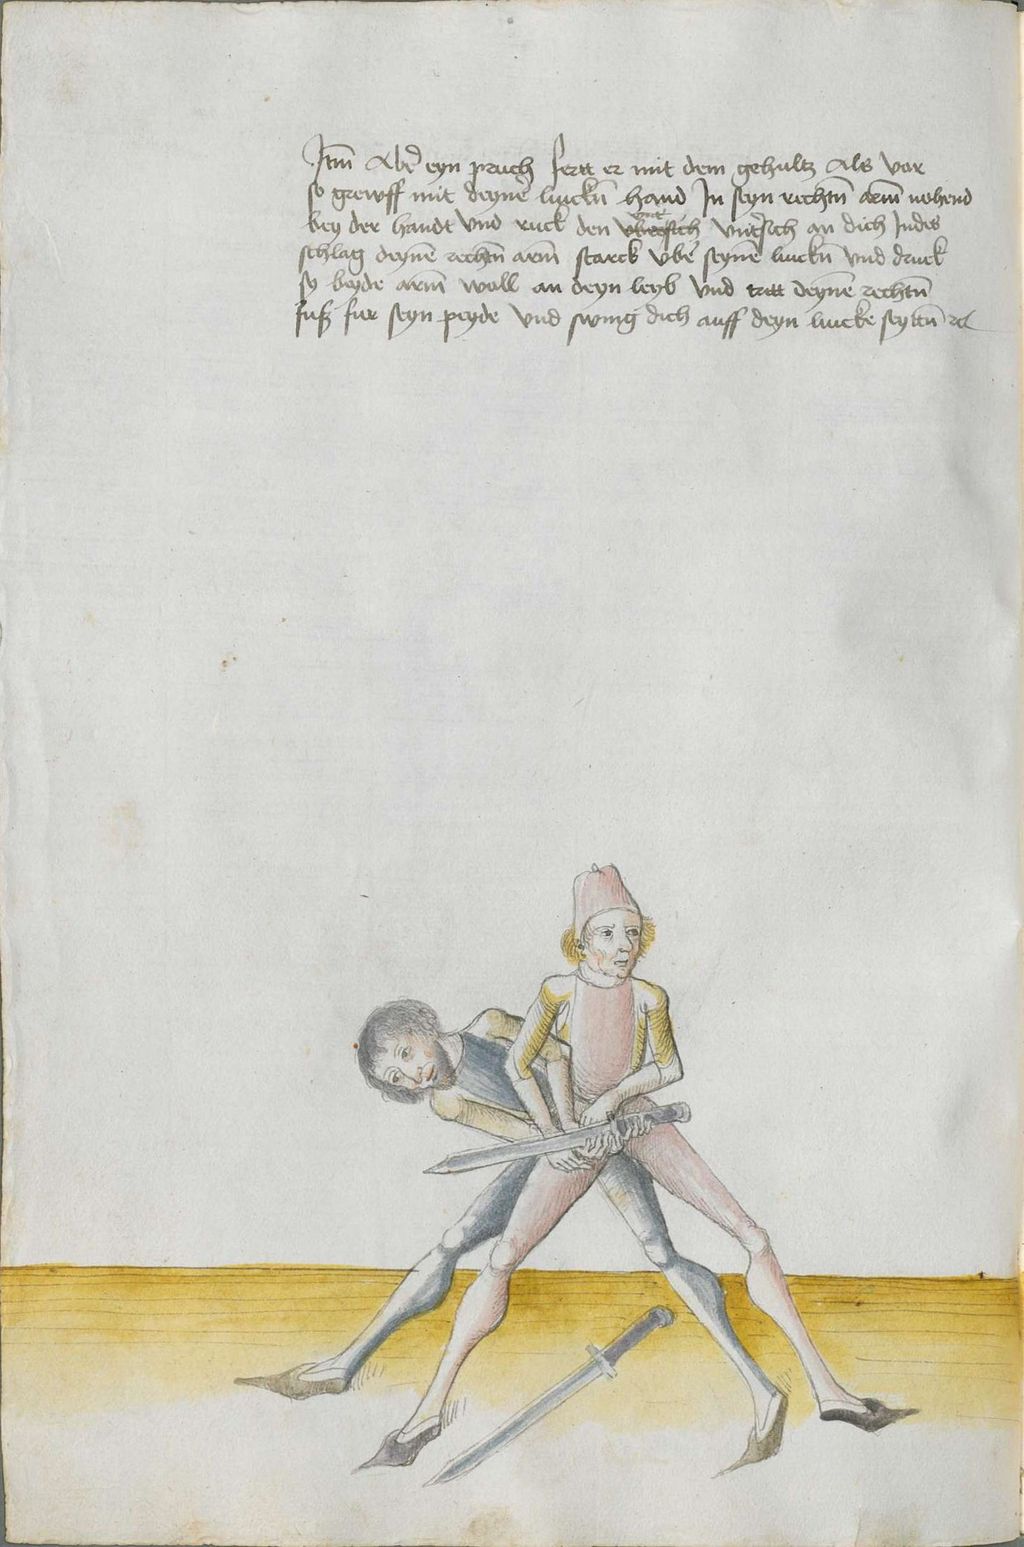 Itm Aber eyn pruch fertt er mit dem gehultz Als vor
so greyff mit deyner linckn hand In seyn rechtn arm nohend
bey der handt vnd ruck den vntersich an dich Indes
schlag deyne rechtn arm starck vber seyne linckn vnd druck
sy beyde arm woll an deyn leyb vnd tritt deyne rechtn
fuß fur seyn peyde vnd swing dich auff deyn lincke seyttn